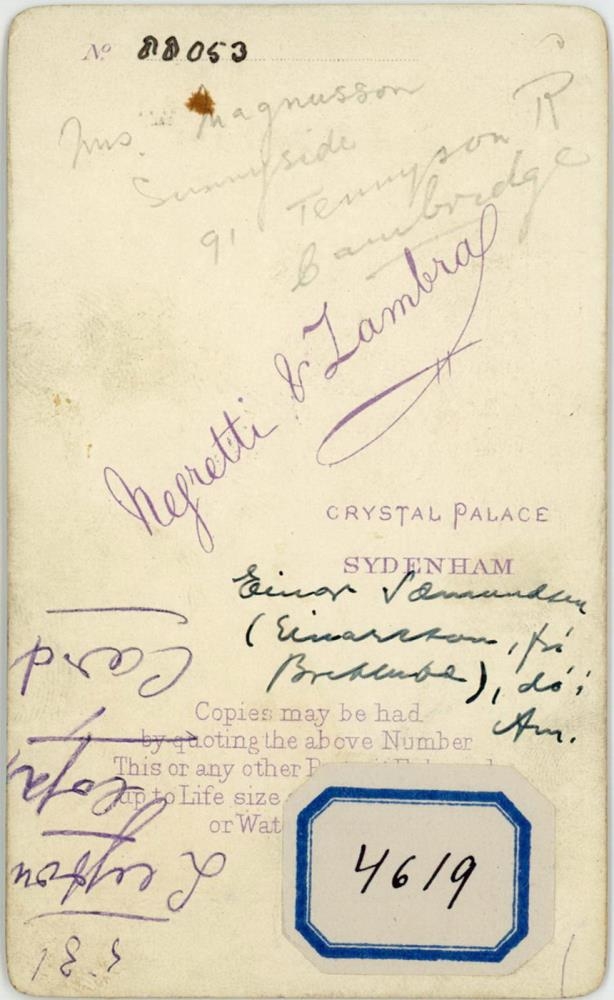 No 88053
Mrs. Magnusson
Sunnyside
91 Tennyson R
Cambridge
Negretti & Zambra
CRYSTAL PALACE
SYDENHAM
Einar Sæmundsen
(Einarsson, frá
Brekkubæ), dó í
Am.
Copies may be had
by quoting the above Number
This or any other
up to Life size
or Wat
4619
Card